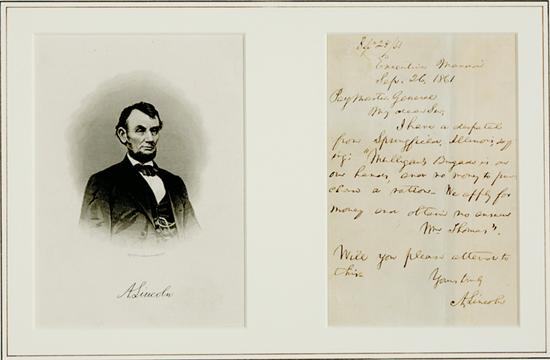 A. Lincoln
Executive Mansion
Sep. 26, 1861
Pay Master General
My dear Sir,
I have a despatch
from Springfield, Illinois, say
ing: "Mulligan's Brigade is on
our hands, and no money to pur
chase a ration. We apply for
money and obtain no answer
Wm Thomas".
Will you please attend to
this.
Yours truly
A. Lincoln